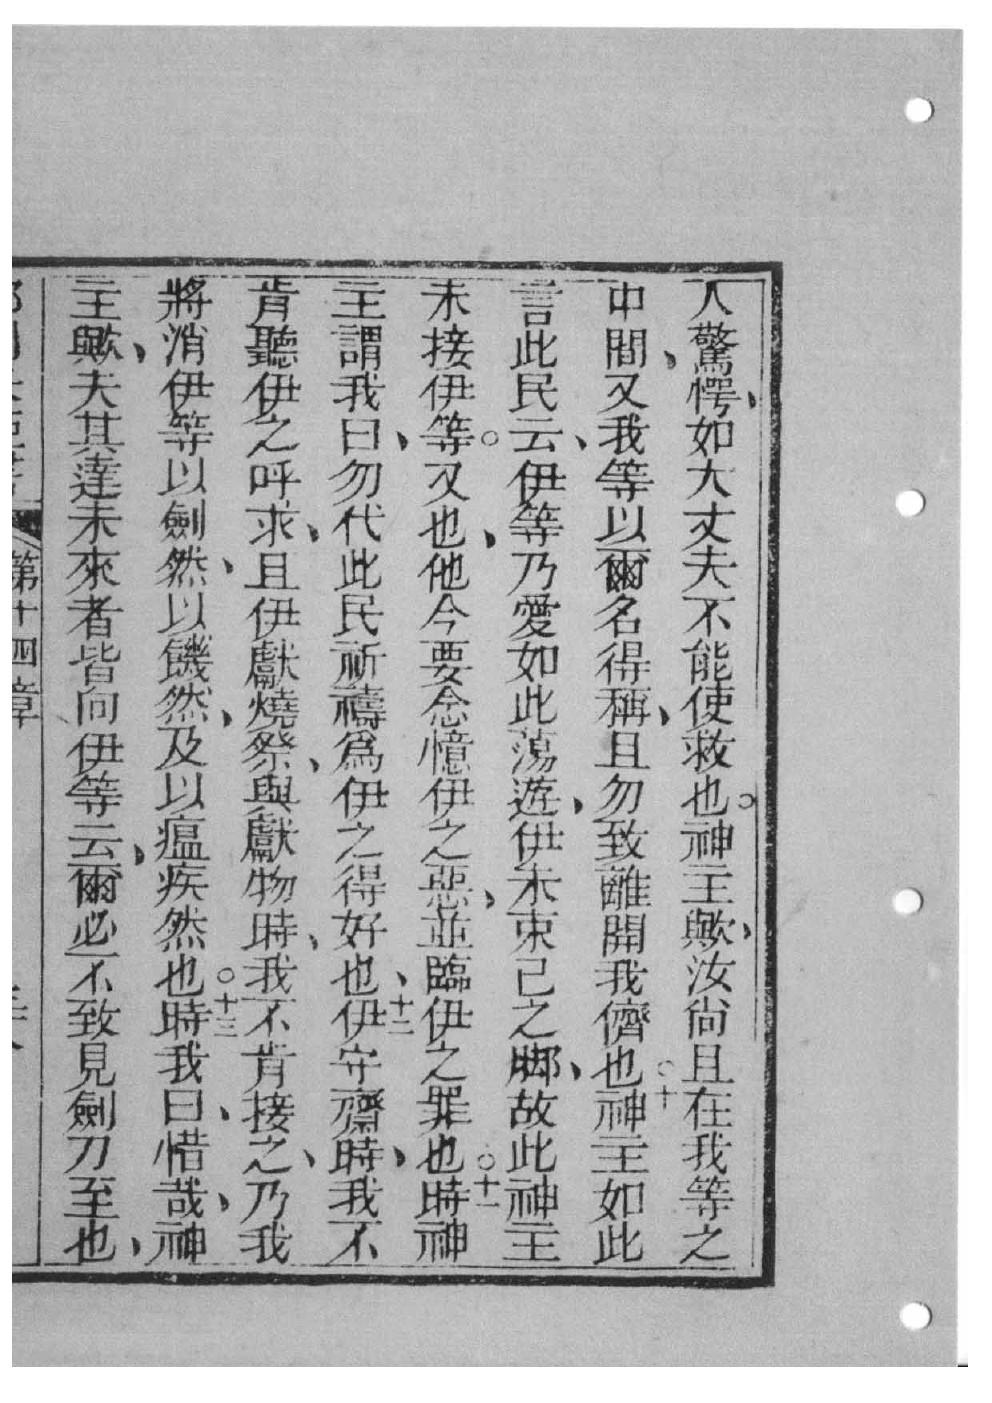 人驚愕、如大丈夫不能使救也。神主歟、汝尙且在我等之
中間、又我等以爾名得稱、且勿致離開我儕也○十神主如此
言此民云、伊等乃愛如此蕩遊、伊未束己之脚、故此神主
未接伊等。又也、他今要念憶伊之惡、並臨伊之罪也○十一時神
主謂我曰、勿代此民祈禱爲伊之得好也、十二伊守齋時、我不
肯聽伊之呼求、且伊獻燒祭、與獻物時、我不肯接之、乃我
將消伊等以劍然、以饑然、及以瘟疾然也○十三時我曰、惜哉、神
主歟、夫其達未來者皆向伊等云、爾必不致見劍刀至也、
第十四章